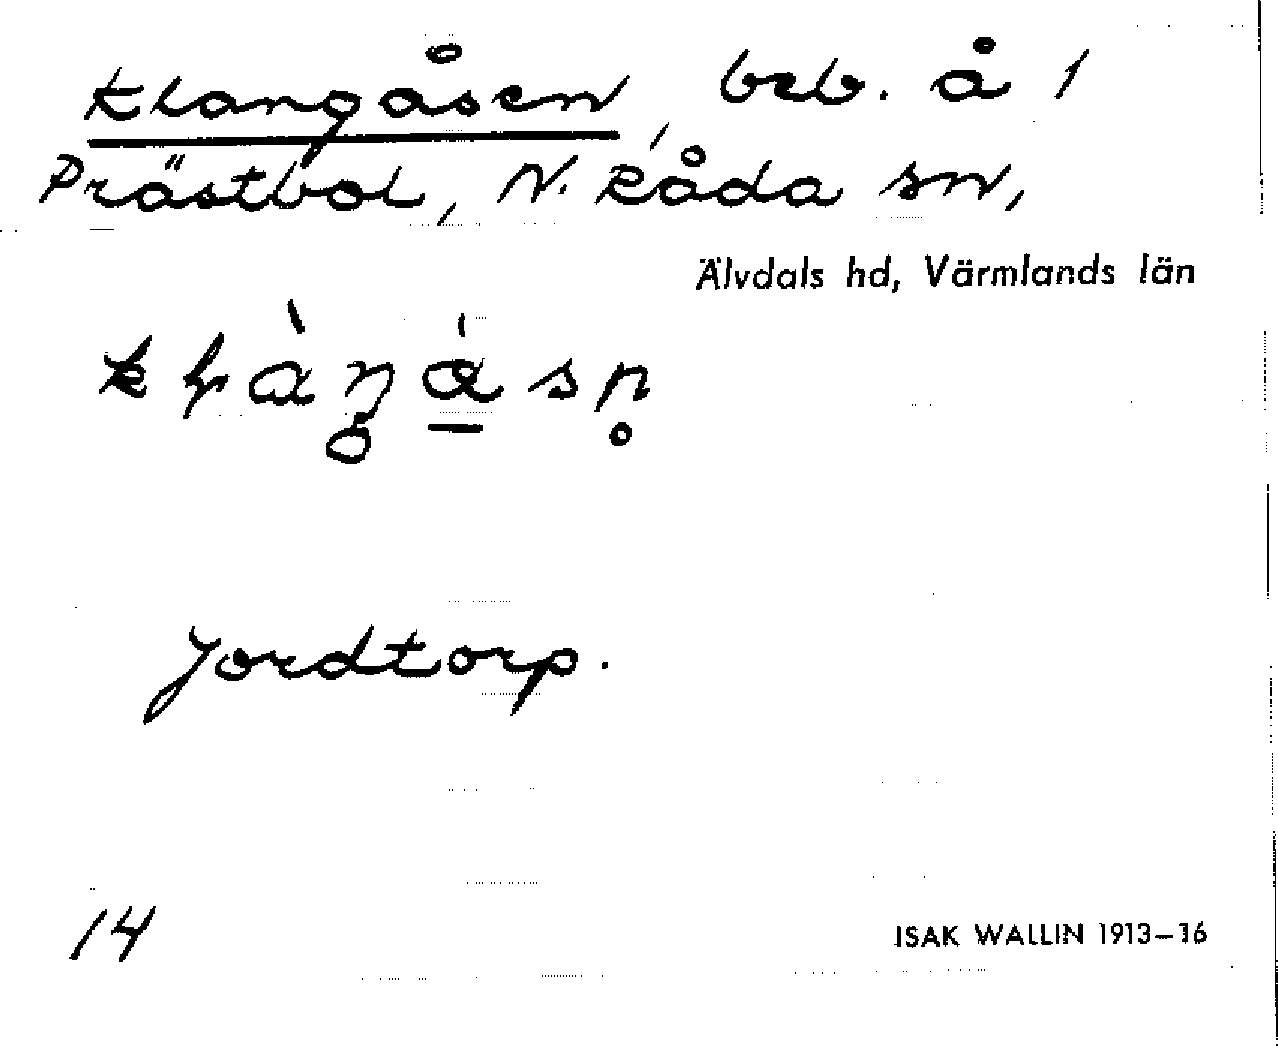 Klangåsen, beb. å 1
Prästbol, N. Råda sn,
Älvdals hd, Värmlands län
Jordtorp.
14
ISAK WALLIN 1913–16